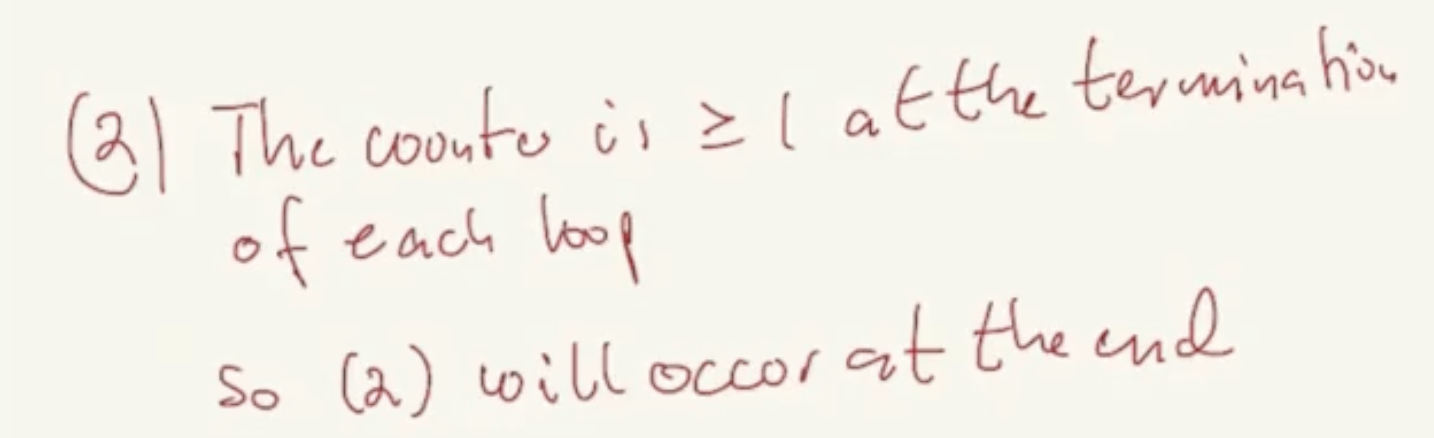 (2) The counter is ≥ 1 at the termination
of each loop
so (2) will occor at the end